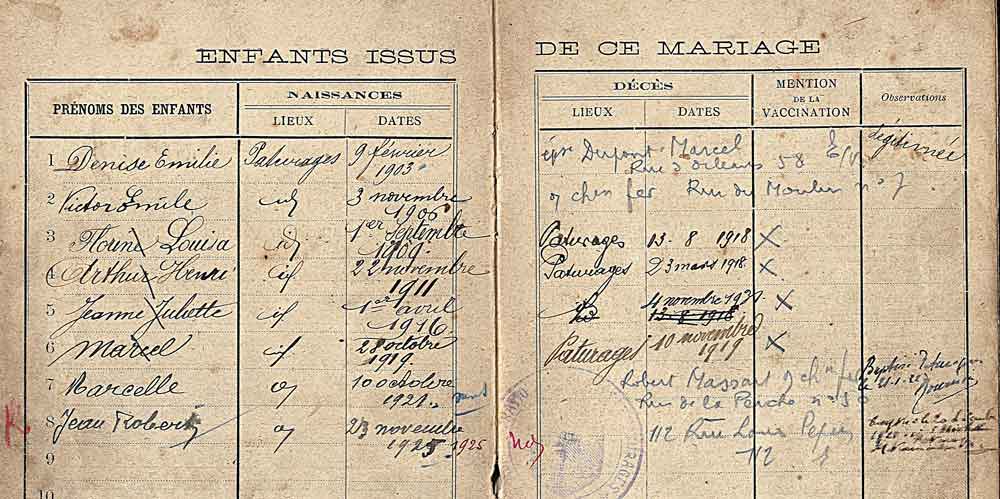 ENFANTS ISSUS DE CE MARIAGE
PRÉNOMS DES ENFANTS NAISSANCES DÉCÈS MENTION DE LA VACCINATION Observations
LIEUX DATES LIEUX DATES
1 Denise Emilie Paturages 9 février 1903 Dupont Marcel légitimée
Rue d'Orléans 58
2 Victor Emile id 3 novembre 1906 chin fer Rue du Moulin n° 7
3 Louisa id 1er Septembre 1909 Paturages 13-8 1918 X
4 Arthur Henri id 22 novembre 1911 Paturages 23 mars 1918 X
5 Jeanne Juliette id 1er avril 1916 4 novembre X
13-8 1918
6 Marcel id 28 octobre 1919 Paturages 10 novembre 1919 X
7 Marcelle id 10 octobre 1921 Robert Massart
Rue de la Perche n° 50
8 Jean Robert id 23 novembre 1925 1925 112 Rue Louis
112
9
10